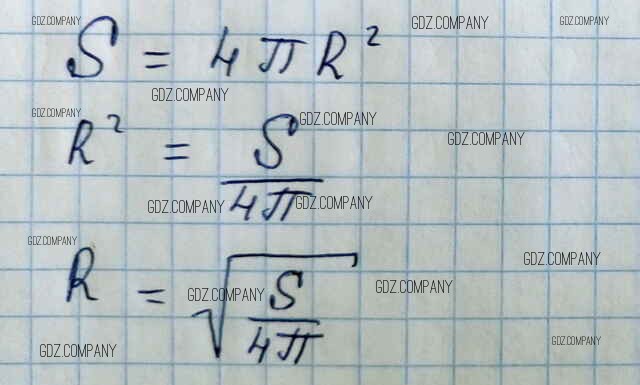 GDZ.COMPANY GDZ.COMPANY GDZ.COMPANY
S = 4πR²
GDZ.COMPANY
GDZ.COMPANY GDZ.COMPANY
R² = S/4π
GDZ.COMPANY
GDZ.COMPANY GDZ.COMPANY
GDZ.COMPANY GDZ.COMPANY
R = √(S/4π)
GDZ.COMPANY GDZ.COMPANY
GDZ.COMPANY GDZ.COMPANY